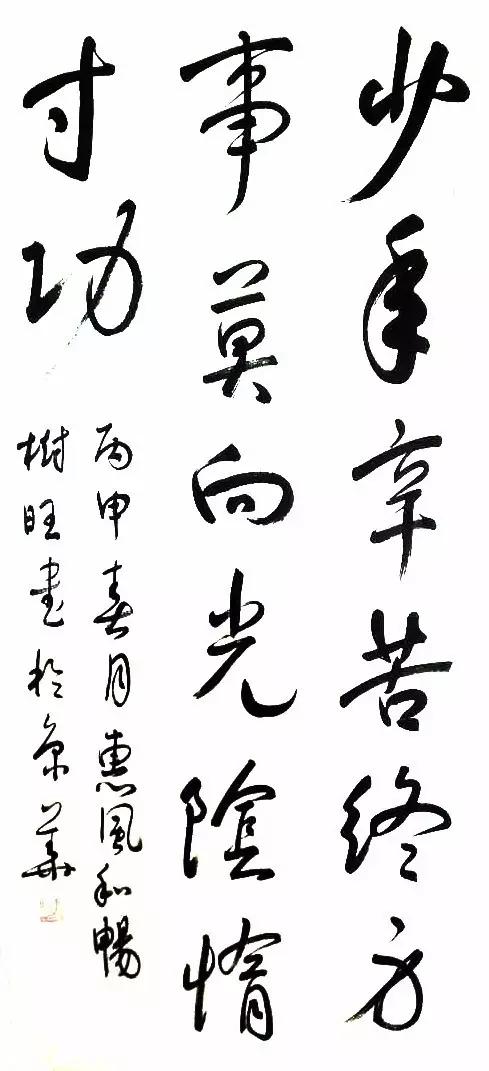 少年辛苦終身
事莫向光陰惰
寸功
丙申春月惠風和暢
樹旺書於京華